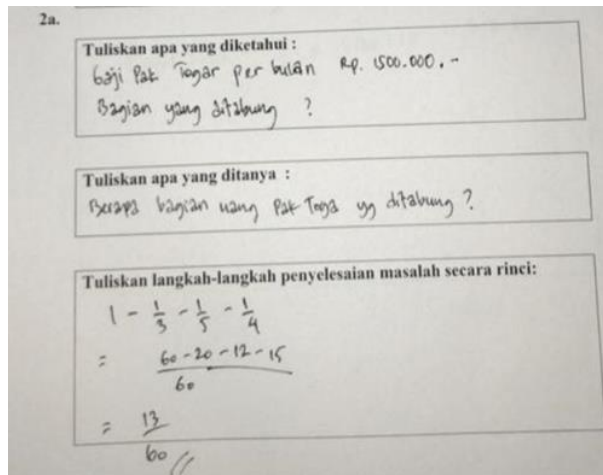 2a.
Tuliskan apa yang diketahui :
Gaji Pak Togar per bulan Rp. 1500.000,-
Bagian yang ditabung ?
Tuliskan apa yang ditanya :
Berapa bagian uang Pak Toga yg ditabung ?
Tuliskan langkah-langkah penyelesaian masalah secara rinci:
1 - 1/3 - 1/5 - 1/4
= 60-20-12-15/60
= 13/60